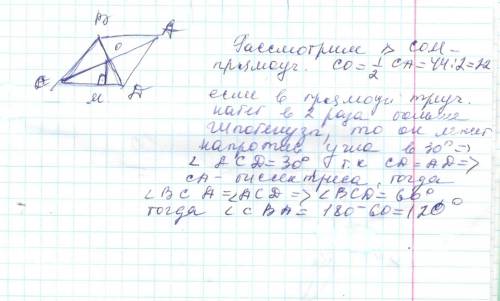 В
А
О
С
М
Д
Рассмотрим △ СОМ –
прямоуг. СО = 1/2 СА = 44:2 = 22
если в прямоуг. треуг.
катет в 2 раза больше
гипотенузы, то он лежит
напротив угла в 30° ⇒
∠ ACD = 30° т.к CD = AD ⇒
СА – биссектриса, тогда
∠ BCA = ∠ACD ⇒ ∠BCD = 60°
тогда ∠ CBA = 180 – 60 = 120°